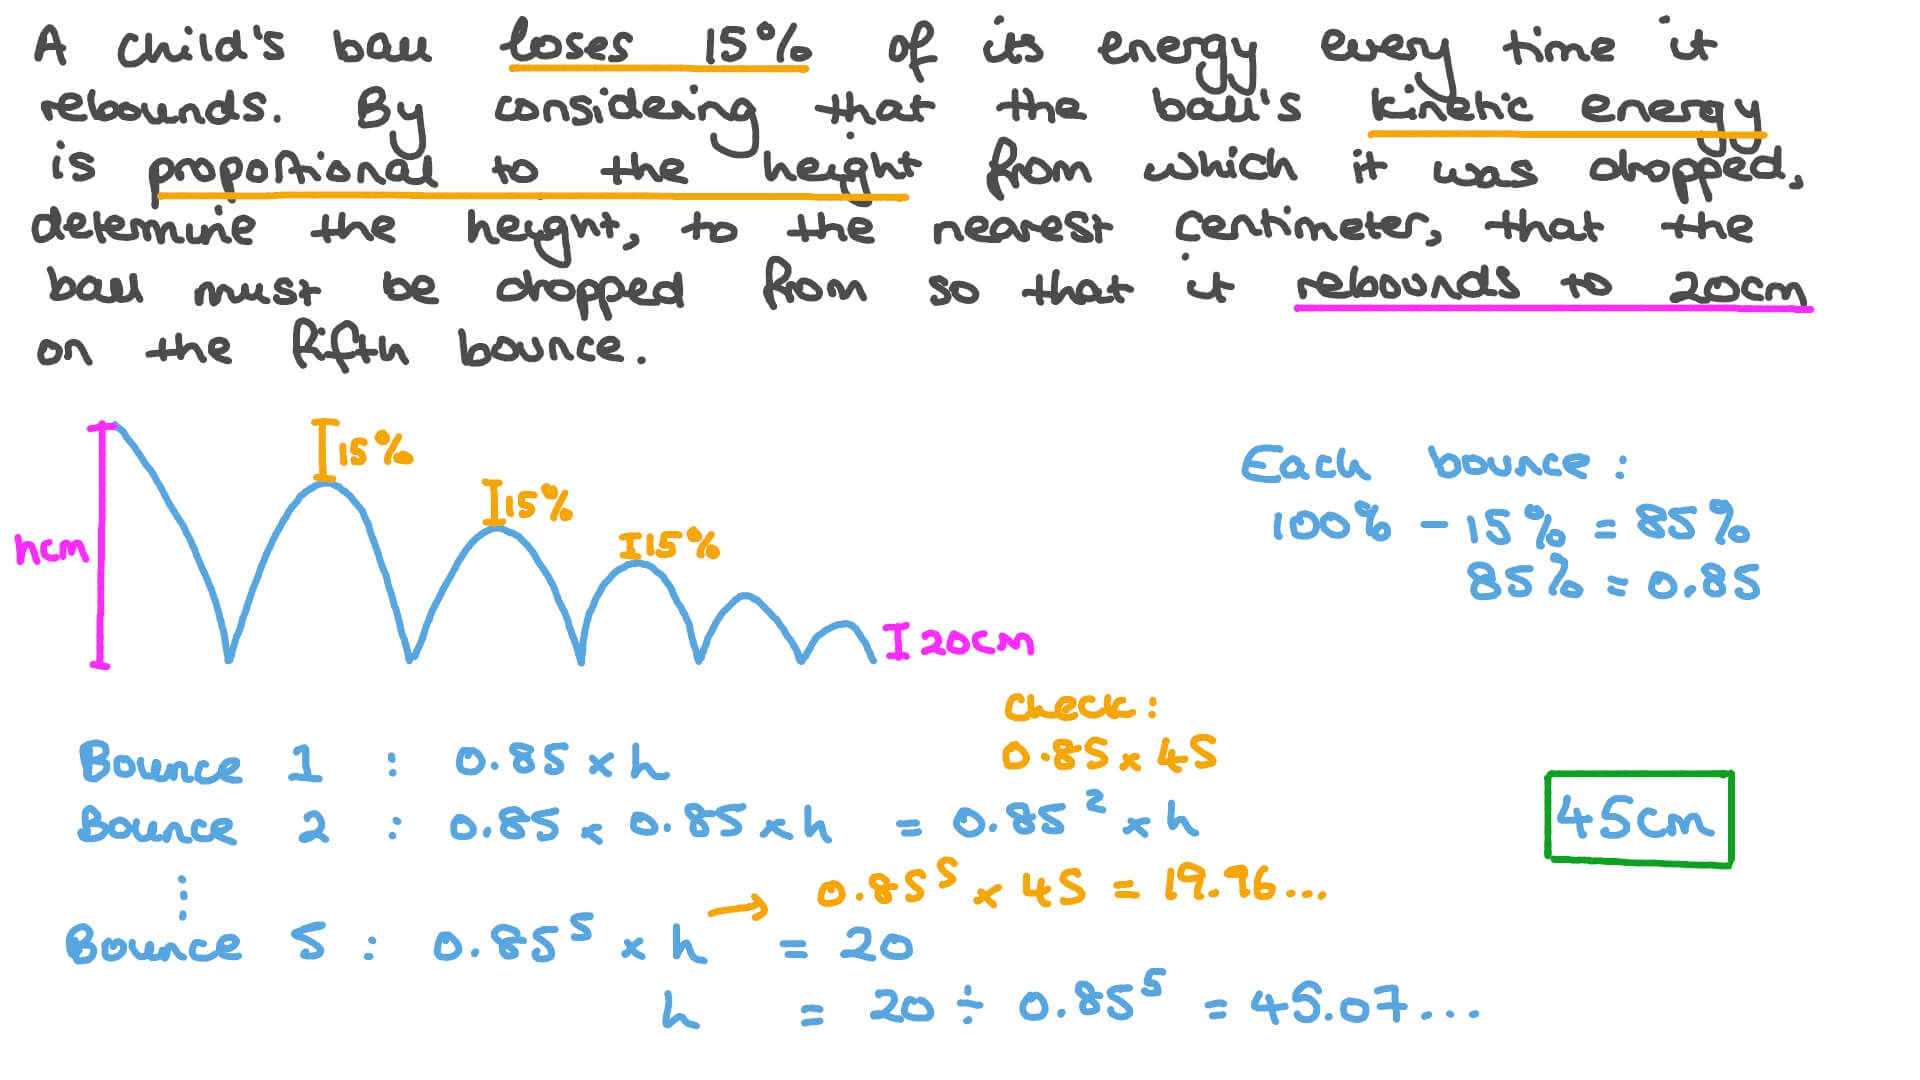 A child's ball loses 15% of its energy every time it
rebounds. By considering that the ball's kinetic energy
is proportional to the height from which it was dropped,
determine the height, to the nearest centimeter, that the
ball must be dropped from so that it rebounds to 20cm
on the fifth bounce.
15%
15%
15%
hcm
20cm
Each bounce:
100% - 15% = 85%
85% = 0.85
Check:
0.85 × 45
Bounce 1 : 0.85 × h
Bounce 2 : 0.85 × 0.85 × h = 0.85² × h
45cm
⋮
→ 0.85⁵ × 45 = 19.96...
Bounce 5 : 0.85⁵ × h = 20
h = 20 ÷ 0.85⁵ = 45.07...